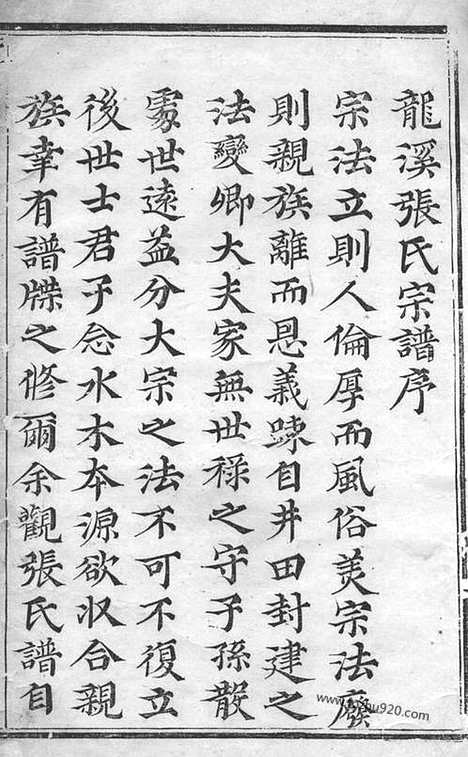 龍溪張氏宗譜序
宗法立則人倫厚而風俗美宗法廢
則親族離而恩義踈自井田封建之
法變卿大夫家無世祿之守子孫散
處世遠益分大宗之法不可不復立
後世士君子念水木本源欲收合親
族幸有譜牒之修爾余觀張氏譜自